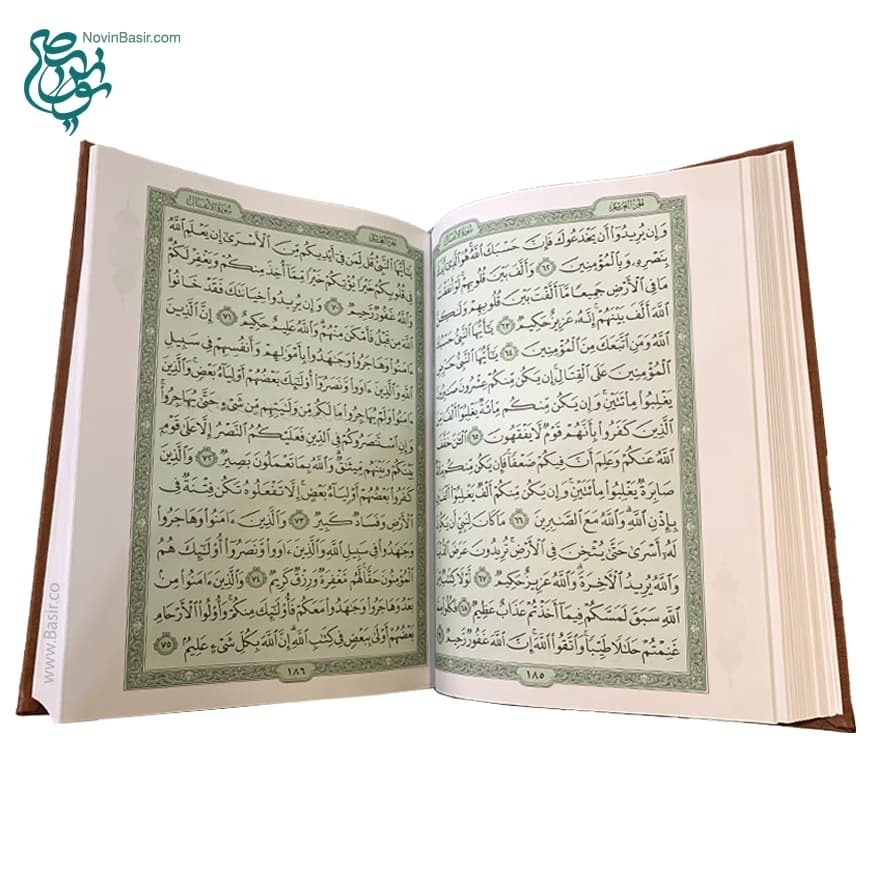 NovinBasir.com
الجزء العاشر
سورة الأنفال
وَإِن يُرِيدُوٓا۟ أَن يَخْدَعُوكَ فَإِنَّ حَسْبَكَ ٱللَّهُ هُوَ ٱلَّذِىٓ أَيَّدَكَ
بِنَصْرِهِۦ وَبِٱلْمُؤْمِنِينَ ۝٦٢ وَأَلَّفَ بَيْنَ قُلُوبِهِمْ لَوْ أَنفَقْتَ
مَا فِى ٱلْأَرْضِ جَمِيعًا مَّآ أَلَّفْتَ بَيْنَ قُلُوبِهِمْ وَلَٰكِنَّ
ٱللَّهَ أَلَّفَ بَيْنَهُمْ إِنَّهُۥ عَزِيزٌ حَكِيمٌ ۝٦٣ يَٰٓأَيُّهَا ٱلنَّبِىُّ حَسْبُكَ
ٱللَّهُ وَمَنِ ٱتَّبَعَكَ مِنَ ٱلْمُؤْمِنِينَ ۝٦٤ يَٰٓأَيُّهَا ٱلنَّبِىُّ حَرِّضِ
ٱلْمُؤْمِنِينَ عَلَى ٱلْقِتَالِ إِن يَكُن مِّنكُمْ عِشْرُونَ صَٰبِرُونَ
يَغْلِبُوا۟ مِا۟ئَتَيْنِ وَإِن يَكُن مِّنكُم مِّا۟ئَةٌ يَغْلِبُوٓا۟ أَلْفًا مِّنَ
ٱلَّذِينَ كَفَرُوا۟ بِأَنَّهُمْ قَوْمٌ لَّا يَفْقَهُونَ ۝٦٥ ٱلْـَٰٔنَ خَفَّفَ
ٱللَّهُ عَنكُمْ وَعَلِمَ أَنَّ فِيكُمْ ضَعْفًا فَإِن يَكُن مِّنكُم مِّا۟ئَةٌ
صَابِرَةٌ يَغْلِبُوا۟ مِا۟ئَتَيْنِ وَإِن يَكُن مِّنكُمْ أَلْفٌ يَغْلِبُوٓا۟ أَلْفَيْنِ
بِإِذْنِ ٱللَّهِ وَٱللَّهُ مَعَ ٱلصَّٰبِرِينَ ۝٦٦ مَا كَانَ لِنَبِىٍّ أَن يَكُونَ
لَهُۥٓ أَسْرَىٰ حَتَّىٰ يُثْخِنَ فِى ٱلْأَرْضِ تُرِيدُونَ عَرَضَ ٱلدُّنْيَا
وَٱللَّهُ يُرِيدُ ٱلْـَٔاخِرَةَ وَٱللَّهُ عَزِيزٌ حَكِيمٌ ۝٦٧ لَّوْلَا كِتَٰبٌ مِّنَ
ٱللَّهِ سَبَقَ لَمَسَّكُمْ فِيمَآ أَخَذْتُمْ عَذَابٌ عَظِيمٌ ۝٦٨ فَكُلُوا۟ مِمَّا
غَنِمْتُمْ حَلَٰلًا طَيِّبًا وَٱتَّقُوا۟ ٱللَّهَ إِنَّ ٱللَّهَ غَفُورٌ رَّحِيمٌ
١٨٥
الجزء العاشر
سورة الأنفال
يَٰٓأَيُّهَا ٱلنَّبِىُّ قُل لِّمَن فِىٓ أَيْدِيكُم مِّنَ ٱلْأَسْرَىٰٓ إِن يَعْلَمِ ٱللَّهُ
فِى قُلُوبِكُمْ خَيْرًا يُؤْتِكُمْ خَيْرًا مِّمَّآ أُخِذَ مِنكُمْ وَيَغْفِرْ لَكُمْ
وَٱللَّهُ غَفُورٌ رَّحِيمٌ ۝٧٠ وَإِن يُرِيدُوا۟ خِيَانَتَكَ فَقَدْ خَانُوا۟
ٱللَّهَ مِن قَبْلُ فَأَمْكَنَ مِنْهُمْ وَٱللَّهُ عَلِيمٌ حَكِيمٌ ۝٧١ إِنَّ ٱلَّذِينَ
ءَامَنُوا۟ وَهَاجَرُوا۟ وَجَٰهَدُوا۟ بِأَمْوَٰلِهِمْ وَأَنفُسِهِمْ فِى سَبِيلِ
ٱللَّهِ وَٱلَّذِينَ ءَاوَوا۟ وَّنَصَرُوٓا۟ أُو۟لَٰٓئِكَ بَعْضُهُمْ أَوْلِيَآءُ بَعْضٍ وَٱلَّذِينَ
ءَامَنُوا۟ وَلَمْ يُهَاجِرُوا۟ مَا لَكُم مِّن وَلَٰيَتِهِم مِّن شَىْءٍ حَتَّىٰ يُهَاجِرُوا۟
وَإِنِ ٱسْتَنصَرُوكُمْ فِى ٱلدِّينِ فَعَلَيْكُمُ ٱلنَّصْرُ إِلَّا عَلَىٰ قَوْمٍۭ
بَيْنَكُمْ وَبَيْنَهُم مِّيثَٰقٌ وَٱللَّهُ بِمَا تَعْمَلُونَ بَصِيرٌ ۝٧٢ وَٱلَّذِينَ
كَفَرُوا۟ بَعْضُهُمْ أَوْلِيَآءُ بَعْضٍ إِلَّا تَفْعَلُوهُ تَكُن فِتْنَةٌ فِى
ٱلْأَرْضِ وَفَسَادٌ كَبِيرٌ ۝٧٣ وَٱلَّذِينَ ءَامَنُوا۟ وَهَاجَرُوا۟
وَجَٰهَدُوا۟ فِى سَبِيلِ ٱللَّهِ وَٱلَّذِينَ ءَاوَوا۟ وَّنَصَرُوٓا۟ أُو۟لَٰٓئِكَ هُمُ
ٱلْمُؤْمِنُونَ حَقًّا لَّهُم مَّغْفِرَةٌ وَرِزْقٌ كَرِيمٌ ۝٧٤ وَٱلَّذِينَ ءَامَنُوا۟ مِنۢ
بَعْدُ وَهَاجَرُوا۟ وَجَٰهَدُوا۟ مَعَكُمْ فَأُو۟لَٰٓئِكَ مِنكُمْ وَأُو۟لُوا۟ ٱلْأَرْحَامِ
بَعْضُهُمْ أَوْلَىٰ بِبَعْضٍ فِى كِتَٰبِ ٱللَّهِ إِنَّ ٱللَّهَ بِكُلِّ شَىْءٍ عَلِيمٌۢ ۝٧٥
١٨٦
www.Basir.co